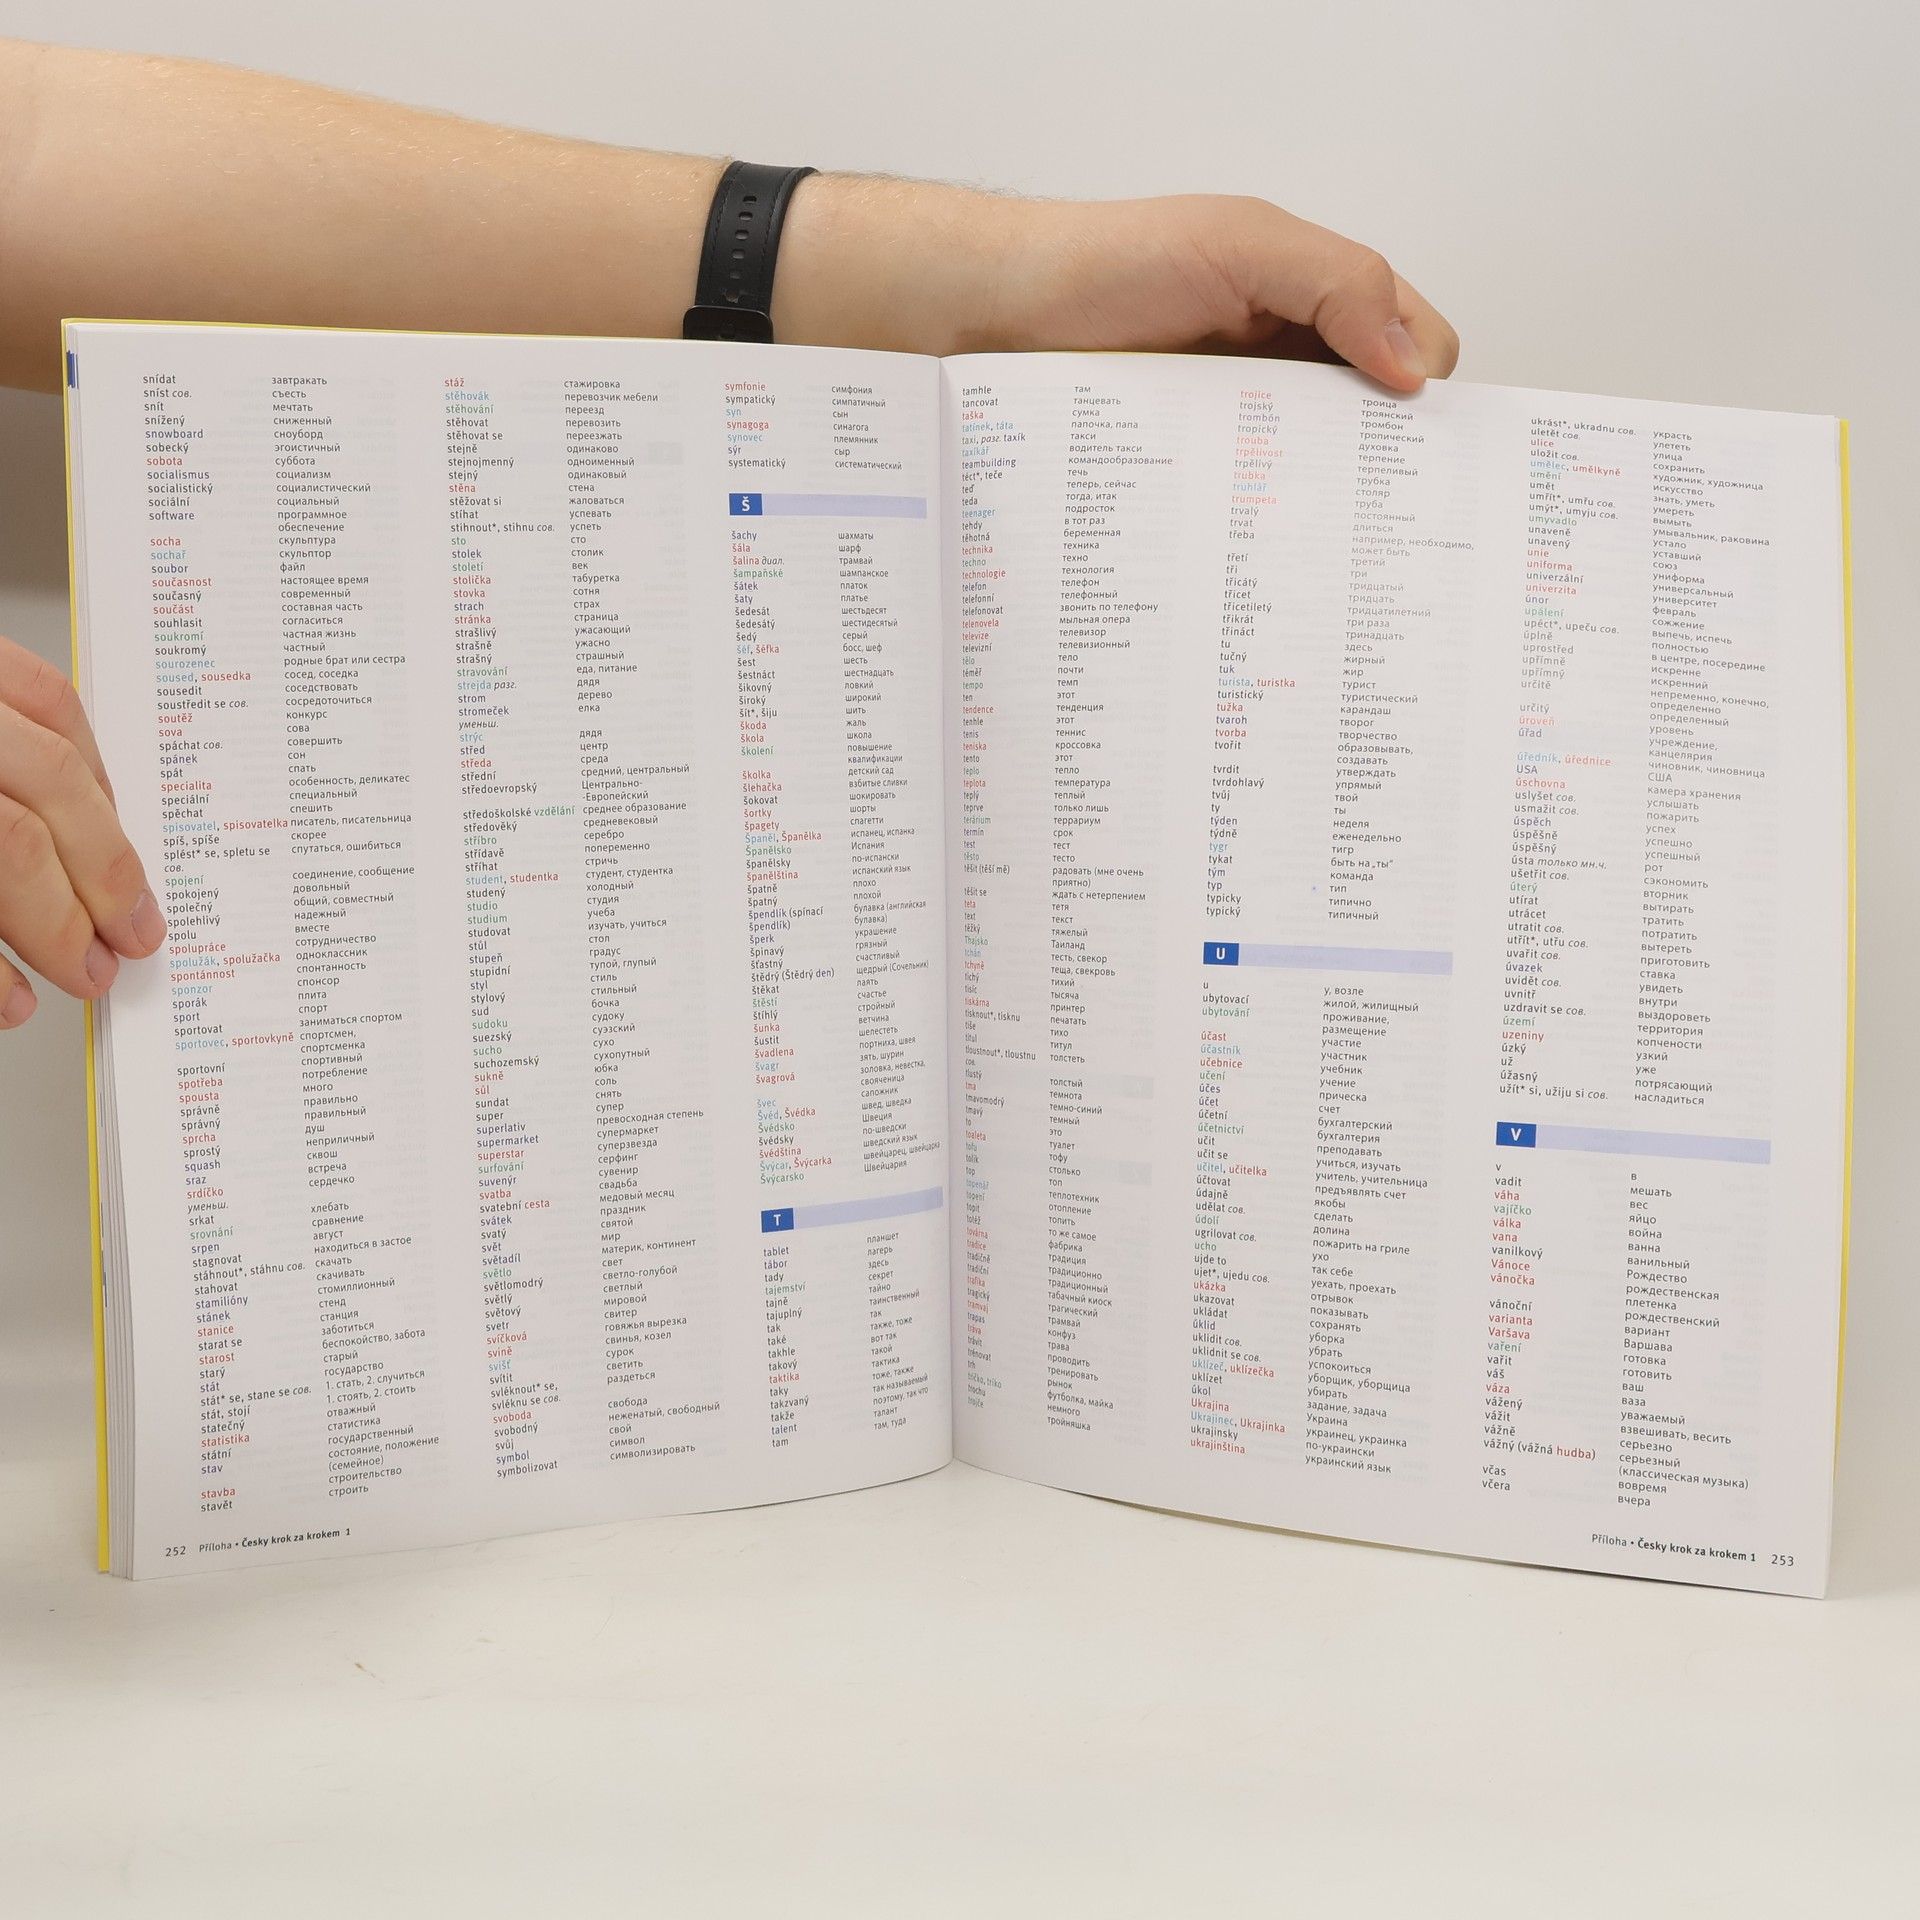 snídat завтракать
sníst сов. съесть
snít мечтать
snížený сниженный
snowboard сноуборд
sobecký эгоистичный
sobota суббота
socialismus социализм
socialistický социалистический
sociální социальный
software программное
обеспечение
socha скульптура
sochař скульптор
soubor файл
současnost настоящее время
současný современный
součást составная часть
souhlasit согласиться
soukromí частная жизнь
soukromý частный
sourozenec родные брат или сестра
soused, sousedka сосед, соседка
sousedit соседствовать
soustředit se сов. сосредоточиться
soutěž конкурс
sova сова
spáchat сов. совершить
spánek сон
spát спать
specialita особенность, деликатес
speciální специальный
spěchat спешить
spisovatel, spisovatelka писатель, писательница
spíš, spíše скорее
splést* se, spletu se спутаться, ошибиться
сов.
spojení соединение, сообщение
spokojený довольный
společný общий, совместный
spolehlivý надежный
spolu вместе
spolupráce сотрудничество
spolužák, spolužačka одноклассник
spontánnost спонтанность
sponzor спонсор
sporák плита
sport спорт
sportovat заниматься спортом
sportovec, sportovkyně спортсмен,
спортсменка
sportovní спортивный
spotřeba потребление
spousta много
správně правильно
správný правильный
sprcha душ
sprostý неприличный
squash сквош
sraz встреча
srdíčko сердечко
уменьш.
srkat хлебать
srovnání сравнение
srpen август
stagnovat находиться в застое
stáhnout*, stáhnu сов. скачать
stahovat скачивать
stamilióny стомиллионный
stánek стенд
stanice станция
starat se заботиться
starost беспокойство, забота
starý старый
stát государство
stát* se, stane se сов. 1. стать, 2. случиться
stát, stojí 1. стоять, 2. стоить
statečný отважный
statistika статистика
státní государственный
stav состояние, положение
(семейное)
stavba строительство
stavět строить
252 Příloha • Česky krok za krokem 1
stáž стажировка
stěhovák перевозчик мебели
stěhování переезд
stěhovat перевозить
stěhovat se переезжать
stejně одинаково
stejnojmenný одноименный
stejný одинаковый
stěna стена
stěžovat si жаловаться
stíhat успевать
stihnout*, stihnu сов. успеть
sto сто
stolek столик
století век
stolička табуретка
stovka сотня
strach страх
stránka страница
strašlivý ужасающий
strašně ужасно
strašný страшный
stravování еда, питание
strejda разг. дядя
strom дерево
stromeček елка
уменьш.
strýc дядя
střed центр
středa среда
střední средний, центральный
středoevropský Центрально-
-Европейский
středoškolské vzdělání среднее образование
středověký средневековый
stříbro серебро
střídavě попеременно
stříhat стричь
student, studentka студент, студентка
studený холодный
studio студия
studium учеба
studovat изучать, учиться
stůl стол
stupeň градус
stupidní тупой, глупый
styl стиль
stylový стильный
sud бочка
sudoku судоку
suezský суэзский
sucho сухо
suchozemský сухопутный
sukně юбка
sůl соль
sundat снять
super супер
superlativ превосходная степень
supermarket супермаркет
superstar суперзвезда
surfování серфинг
suvenýr сувенир
svatba свадьба
svatební cesta медовый месяц
svátek праздник
svatý святой
svět мир
světadíl материк, континент
světlo свет
světlomodrý светло-голубой
světlý светлый
světový мировой
svetr свитер
svíčková говяжья вырезка
svině свинья, козел
svišť сурок
svítit светить
svléknout* se, раздеться
svléknu se сов.
svoboda свобода
svobodný неженатый, свободный
svůj свой
symbol символ
symbolizovat символизировать
symfonie симфония
sympatický симпатичный
syn сын
synagoga синагога
synovec племянник
sýr сыр
systematický систематический
Š
šachy шахматы
šála шарф
šalina диал. трамвай
šampaňské шампанское
šátek платок
šaty платье
šedesát шестьдесят
šedesátý шестидесятый
šedý серый
šéf, šéfka босс, шеф
šest шесть
šestnáct шестнадцать
šikovný ловкий
široký широкий
šít*, šiju шить
škoda жаль
škola школа
školení повышение
квалификации
školka детский сад
šlehačka взбитые сливки
šokovat шокировать
šortky шорты
špagety спагетти
Španěl, Španělka испанец, испанка
Španělsko Испания
španělsky по-испански
španělština испанский язык
špatně плохо
špatný плохой
špendlík (spínací булавка (английская
špendlík) булавка)
šperk украшение
špinavý грязный
šťastný счастливый
štědrý (Štědrý den) щедрый (Сочельник)
štěkat лаять
štěstí счастье
štíhlý стройный
šunka ветчина
šustit шелестеть
švadlena портниха, швея
švagr зять, шурин
švagrová золовка, невестка,
свояченица
švec сапожник
Švéd, Švédka швед, шведка
Švédsko Швеция
švédsky по-шведски
švédština шведский язык
Švýcar, Švýcarka швейцарец, швейцарка
Švýcarsko Швейцария
T
tablet планшет
tábor лагерь
tady здесь
tajemství секрет
tajně тайно
tajuplný таинственный
tak так
také также, тоже
takhle вот так
takový такой
taktika тактика
taky тоже, также
takzvaný так называемый
takže поэтому, так что
talent талант
tam там, туда
tamhle там
tancovat танцевать
taška сумка
tatínek, táta папочка, папа
taxi, разг. taxík такси
taxikář водитель такси
teambuilding командообразование
téct*, teče течь
teď теперь, сейчас
teda тогда, итак
teenager подросток
tehdy в тот раз
těhotná беременная
technika техника
techno техно
technologie технология
telefon телефон
telefonní телефонный
telefonovat звонить по телефону
telenovela мыльная опера
televize телевизор
televizní телевизионный
tělo тело
téměř почти
tempo темп
ten этот
tendence тенденция
tenhle этот
tenis теннис
teniska кроссовка
tento этот
teplo тепло
teplota температура
teplý теплый
teprve только лишь
terárium террариум
termín срок
test тест
těsto тесто
těšit (těší mě) радовать (мне очень
приятно)
těšit se ждать с нетерпением
teta тетя
text текст
těžký тяжелый
Thajsko Таиланд
tchán тесть, свекор
tchyně теща, свекровь
tichý тихий
tisíc тысяча
tiskárna принтер
tisknout*, tisknu печатать
tiše тихо
titul титул
tloustnout*, tloustnu толстеть
сов.
tlustý толстый
tma темнота
tmavomodrý темно-синий
tmavý темный
to это
toaleta туалет
tofu тофу
tolik столько
top топ
topenář теплотехник
topení отопление
topit топить
totéž то же самое
továrna фабрика
tradice традиция
tradičně традиционно
tradiční традиционный
trafika табачный киоск
tragický трагический
tramvaj трамвай
trapas конфуз
tráva трава
trávit проводить
trénovat тренировать
trh рынок
tričko, triko футболка, майка
trochu немного
trojče тройняшка
trojice троица
trojský троянский
trombón тромбон
tropický тропический
trouba духовка
trpělivost терпение
trpělivý терпеливый
trubka трубка
truhlář столяр
trumpeta труба
trvalý постоянный
trvat длиться
třeba например, необходимо,
может быть
třetí третий
tři три
třicátý тридцатый
třicet тридцать
třicetiletý тридцатилетний
třikrát три раза
třináct тринадцать
tu здесь
tučný жирный
tuk жир
turista, turistka турист
turistický туристический
tužka карандаш
tvaroh творог
tvorba творчество
tvořit образовывать,
создавать
tvrdit утверждать
tvrdohlavý упрямый
tvůj твой
ty ты
týden неделя
týdně еженедельно
tygr тигр
tykat быть на „ты“
tým команда
typ тип
typicky типично
typický типичный
U
u у, возле
ubytovací жилой, жилищный
ubytování проживание,
размещение
účast участие
účastník участник
učebnice учебник
učení учение
účes прическа
účet счет
účetní бухгалтерский
účetnictví бухгалтерия
učit преподавать
učit se учиться, изучать
učitel, učitelka учитель, учительница
účtovat предъявлять счет
údajně якобы
udělat сов. сделать
údolí долина
ugrilovat сов. пожарить на гриле
ucho ухо
ujde to так себе
ujet*, ujedu сов. уехать, проехать
ukázka отрывок
ukazovat показывать
ukládat сохранять
úklid уборка
uklidit сов. убрать
uklidnit se сов. успокоиться
uklízeč, uklízečka уборщик, уборщица
uklízet убирать
úkol задание, задача
Ukrajina Украина
Ukrajinec, Ukrajinka украинец, украинка
ukrajinsky по-украински
ukrajinština украинский язык
ukrást*, ukradnu сов. украсть
uletět сов. улететь
ulice улица
uložit сов. сохранить
umělec, umělkyně художник, художница
umění искусство
umět знать, уметь
umřít*, umřu сов. умереть
umýt*, umyju сов. вымыть
umyvadlo умывальник, раковина
unaveně устало
unavený уставший
unie союз
uniforma униформа
univerzální универсальный
univerzita университет
únor февраль
upálení сожжение
upéct*, upeču сов. выпечь, испечь
úplně полностью
uprostřed в центре, посередине
upřímně искренне
upřímný искренний
určitě непременно, конечно,
определенно
určitý определенный
úroveň уровень
úřad учреждение,
канцелярия
úředník, úřednice чиновник, чиновница
USA США
úschovna камера хранения
uslyšet сов. услышать
usmažit сов. пожарить
úspěch успех
úspěšně успешно
úspěšný успешный
ústa только мн.ч. рот
ušetřit сов. сэкономить
úterý вторник
utírat вытирать
utrácet тратить
utratit сов. потратить
utřít*, utřu сов. вытереть
uvařit сов. приготовить
úvazek ставка
uvidět сов. увидеть
uvnitř внутри
uzdravit se сов. выздороветь
území территория
uzeniny копчености
úzký узкий
už уже
úžasný потрясающий
užít* si, užiju si сов. насладиться
V
v в
vadit мешать
váha вес
vajíčko яйцо
válka война
vana ванна
vanilkový ванильный
Vánoce Рождество
vánočka рождественская
плетенка
vánoční рождественский
varianta вариант
Varšava Варшава
vaření готовка
vařit готовить
váš ваш
váza ваза
vážený уважаемый
vážit взвешивать, весить
vážně серьезно
vážný (vážná hudba) серьезный
(классическая музыка)
včas вовремя
včera вчера
Příloha • Česky krok za krokem 1 253